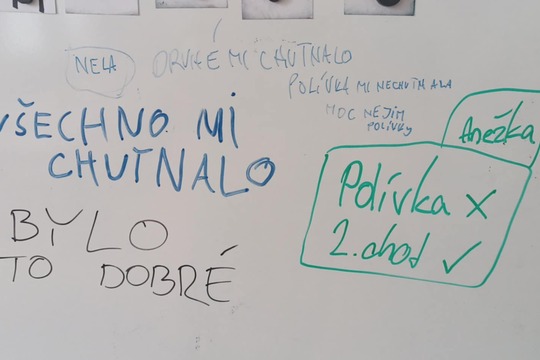 NELA
DRUHÉ MI CHUTNALO
POLÍVKA MI NECHUTNALA
MOC NEJÍM
POLÍVKY
VŠECHNO MI
CHUŤNALO
Anežka
Polívka x
2. chod ✓
BYLO
TO DOBRÉ